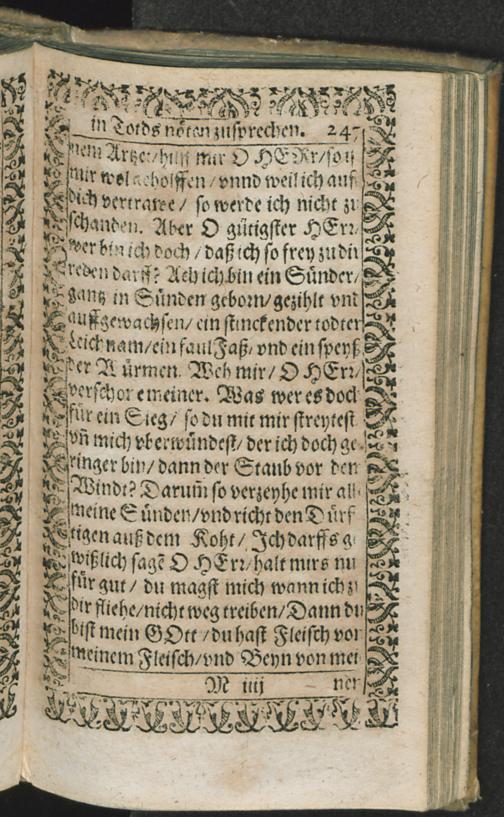 in Tods nöten zusprechen. 247
nem Artzet/ hilff mir O HERr/ so ist
mir wol geholffen / vnnd weil ich auf
dich vertrawe / so werde ich nicht zu
schanden. Aber O gütigster HErr/
wer bin ich doch / daß ich so frey zu dir
reden darff? Ach ich bin ein Sünder/
gantz in Sünden geborn/ gezihlt vnd
auffgewachsen/ ein stinckender todter
Leichnam/ ein faul Faß/ vnd ein speyß
der Würmen. Weh mir/ O HErr/
verschone meiner. Was wer es doch
für ein Sieg/ so du mit mir streytest
vn̄ mich vberwündest/ der ich doch ge
ringer bin/ dann der Staub vor dem
Windt? Darum̄ so verzeyhe mir all
meine Sünden/ vnd richt den Dürf
tigen auß dem Koht/ Ich darffs ge
wißlich sagē O HErr/ halt mirs nu
für gut / du magst mich wann ich zu
dir fliehe/ nicht weg treiben/ Dann du
bist mein GOtt / du hast Fleisch von
meinem Fleisch/ vnd Beyn von mei
M iiij ner